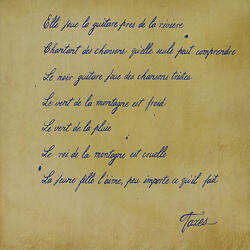 Elle joue la guitare pres de la riviere
Chantant des chansons qu'elle seule peut comprendre
Le noir guitare joue des chansons tristes
Le vent de la montagne est froid
Le vent de la pluie
Le roi de la montagne est cruelle
La jeune fille l'aime, peu importe ce qu'il fait
Taxes